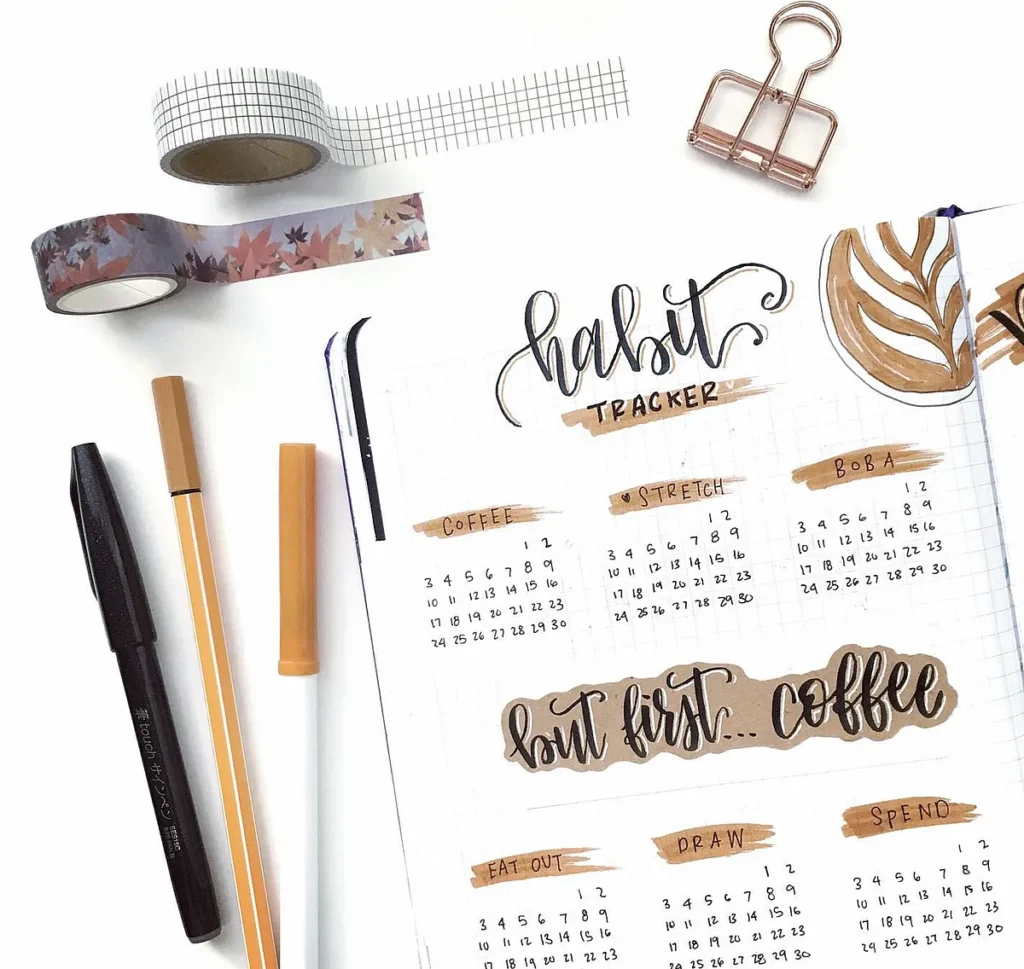 habit
TRACKER
COFFEE
1 2
3 4 5 6 7 8 9
10 11 12 13 14 15 16
17 18 19 20 21 22 23
24 25 26 27 28 29 30
STRETCH
1 2
3 4 5 6 7 8 9
10 11 12 13 14 15 16
17 18 19 20 21 22 23
24 25 26 27 28 29 30
BOBA
1 2
3 4 5 6 7 8 9
10 11 12 13 14 15 16
17 18 19 20 21 22 23
24 25 26 27 28 29 30
but first... coffee
EAT OUT
1 2
3 4 5 6 7 8 9
10 11 12 13 14 15 16
DRAW
1 2
3 4 5 6 7 8 9
10 11 12 13 14 15 16
17 18 19 20 21 22 23
24 25 26 27 28 29 30
SPEND
1 2
3 4 5 6 7 8 9
10 11 12 13 14 15 16
17 18 19 20 21 22 23
24 25 26 27 28 29 30
touch サインペン